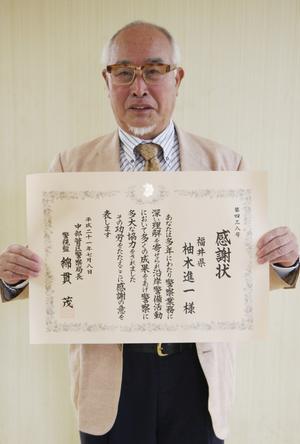 第四三八号
感謝状
福井県
柚木進一様
あなたは多年にわたり警察業務に
深い理解を寄せられ沿岸警備活動
において多くの成果をあげ警察に
多大な協力をされました
その功労をたたえここに感謝の意を
表します
平成二十一年七月八日
中部管区警察局長
警視監 綿貫茂